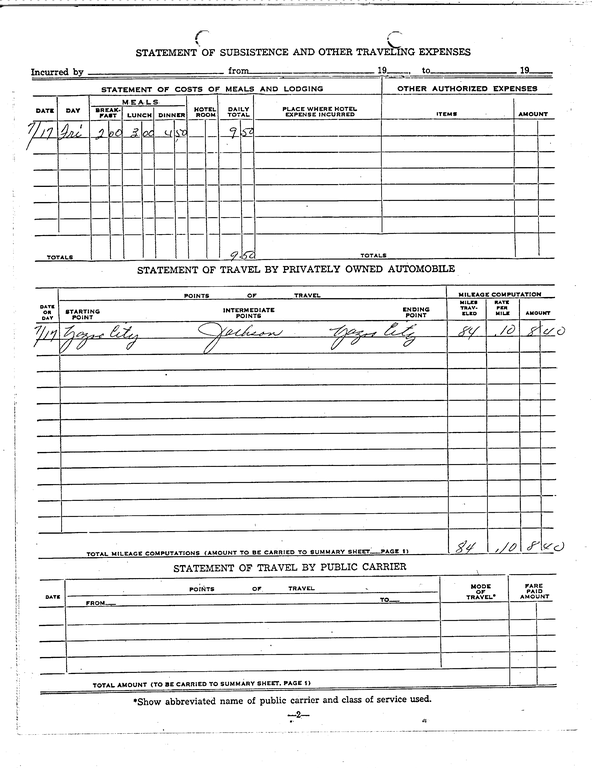 STATEMENT OF SUBSISTENCE AND OTHER TRAVELING EXPENSES
Incurred by from 19 , to 19
STATEMENT OF COSTS OF MEALS AND LODGING OTHER AUTHORIZED EXPENSES
DATE DAY MEALS BREAK-FAST LUNCH DINNER HOTEL ROOM DAILY TOTAL PLACE WHERE HOTEL EXPENSE INCURRED ITEMS AMOUNT
7/17 Fri 2 00 3 00 4 50 9 50
TOTALS 9 50 TOTALS
STATEMENT OF TRAVEL BY PRIVATELY OWNED AUTOMOBILE
POINTS OF TRAVEL MILEAGE COMPUTATION
DATE OR DAY STARTING POINT INTERMEDIATE POINTS ENDING POINT MILES TRAV-ELED RATE PER MILE AMOUNT
7/17 Yazoo City Jackson Yazoo City 84 .10 8 40
TOTAL MILEAGE COMPUTATIONS (AMOUNT TO BE CARRIED TO SUMMARY SHEET PAGE 1) 84 .10 8 40
STATEMENT OF TRAVEL BY PUBLIC CARRIER
DATE POINTS OF TRAVEL MODE OF TRAVEL* FARE PAID AMOUNT
FROM TO
TOTAL AMOUNT (TO BE CARRIED TO SUMMARY SHEET, PAGE 1)
*Show abbreviated name of public carrier and class of service used.
—2—